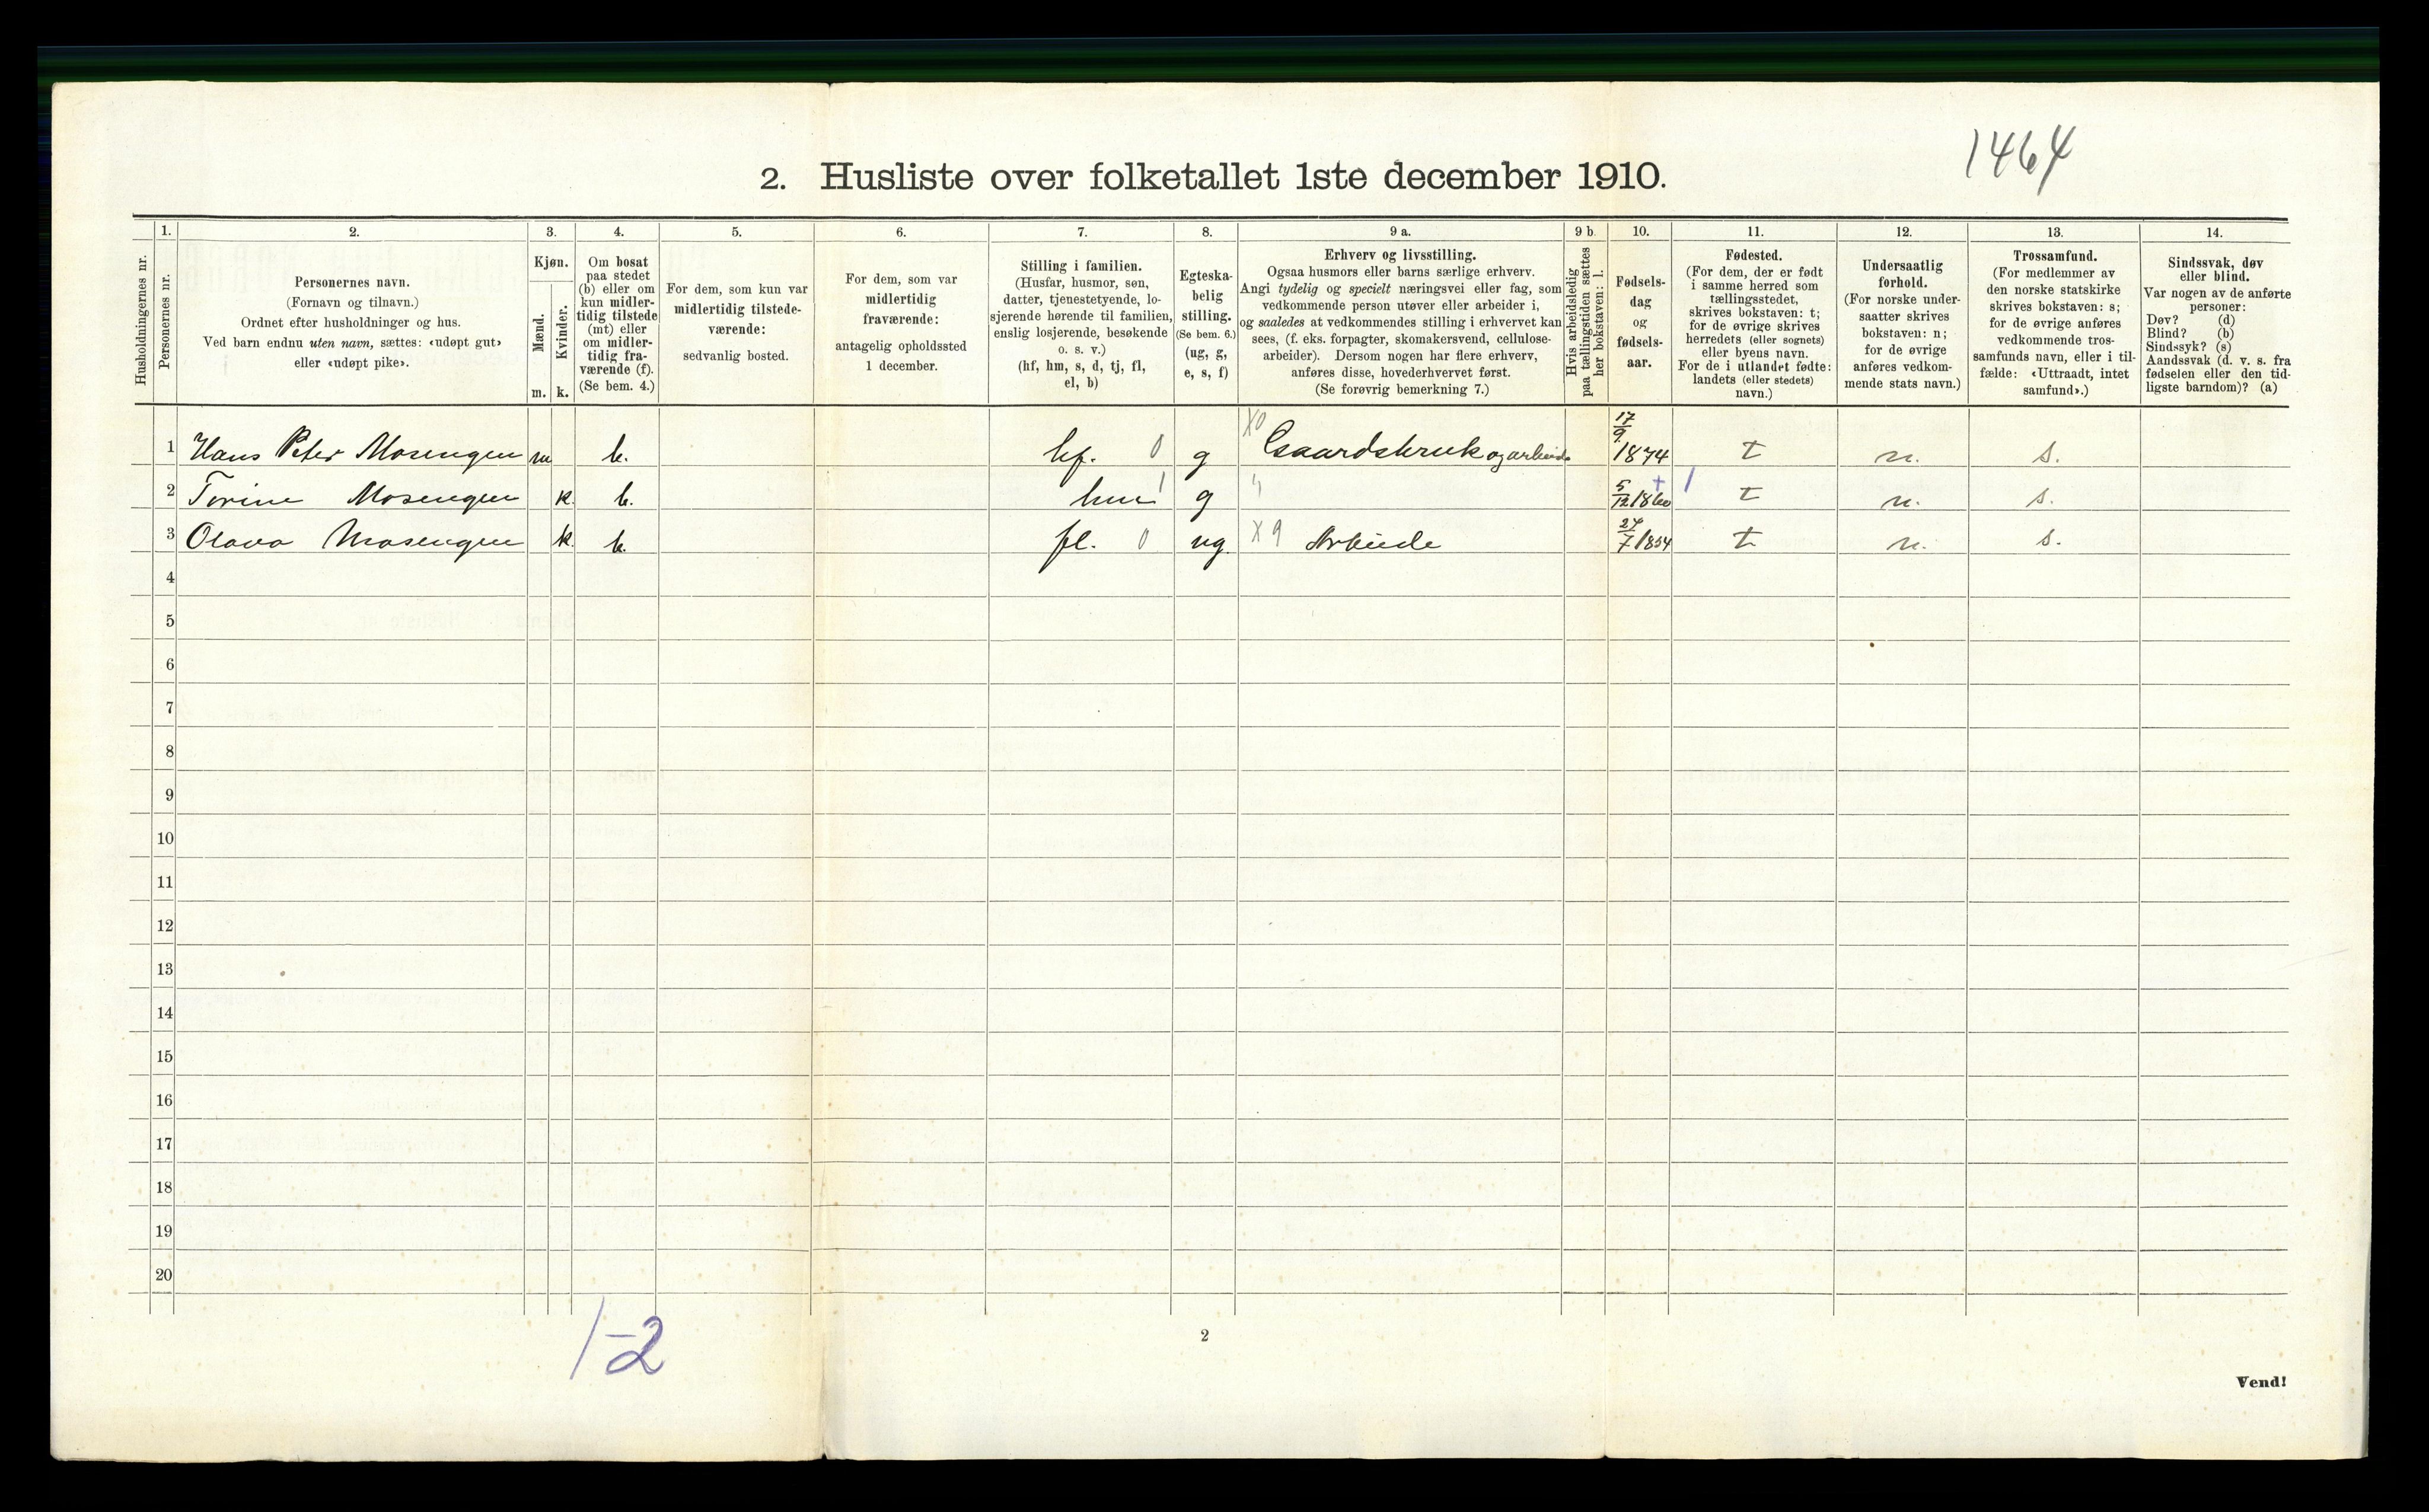 1464
2. Husliste over folketallet 1ste december 1910.
1. 2. 3. 4. 5. 6. 7. 8. 9 a. 9 b. 10. 11. 12. 13. 14.
Husholdningernes nr.
Personernes nr.
Personernes navn.
(Fornavn og tilnavn.)
Ordnet efter husholdninger og hus.
Ved barn endnu uten navn, sættes: «udøpt gut»
eller «udøpt pike».
Kjøn.
Mænd.
Kvinder.
m. k.
Om bosat
paa stedet
(b) eller om
kun midler-
tidig tilstede
(mt) eller
om midler-
tidig fra-
værende (f).
(Se bem. 4.)
For dem, som kun var
midlertidig tilstede-
værende:
sedvanlig bosted.
For dem, som var
midlertidig
fraværende:
antagelig opholdssted
1 december.
Stilling i familien.
(Husfar, husmor, søn,
datter, tjenestetyende, lo-
sjerende hørende til familien,
enslig losjerende, besøkende
o. s. v.)
(hf, hm, s, d, tj, fl,
el, b)
Egteska-
belig
stilling.
(Se bem. 6.)
(ug, g,
e, s, f)
Erhverv og livsstilling.
Ogsaa husmors eller barns særlige erhverv.
Angi tydelig og specielt næringsvei eller fag, som
vedkommende person utøver eller arbeider i,
og saaledes at vedkommendes stilling i erhvervet kan
sees, (f. eks. forpagter, skomakersvend, cellulose-
arbeider). Dersom nogen har flere erhverv,
anføres disse, hovederhvervet først.
(Se forøvrig bemerkning 7.)
Hvis arbeidsledig
paa tællingstiden sættes
her bokstaven: l.
Fødsels-
dag
og
fødsels-
aar.
Fødested.
(For dem, der er født
i samme herred som
tællingsstedet,
skrives bokstaven: t;
for de øvrige skrives
herredets (eller sognets)
eller byens navn.
For de i utlandet fødte:
landets (eller stedets)
navn.)
Undersaatlig
forhold.
(For norske under-
saatter skrives
bokstaven: n;
for de øvrige
anføres vedkom-
mende stats navn.)
Trossamfund.
(For medlemmer av
den norske statskirke
skrives bokstaven: s;
for de øvrige anføres
vedkommende tros-
samfunds navn, eller i til-
fælde: «Uttraadt, intet
samfund».)
Sindssvak, døv
eller blind.
Var nogen av de anførte
personer:
Døv? (d)
Blind? (b)
Sindssyk? (s)
Aandssvak (d. v. s. fra
fødselen eller den tid-
ligste barndom)? (a)
1 Hans Peter Mosengen m b. hf. 0 g X0 Gaardsbruk og arbeide 17/9 1874 t n. s.
2 Torine Mosengen k. b. hm 1 g 5/12 1860 + 1 t n. s.
3 Olava Mosengen k. b. fl. 0 ug. X 9 Arbeide 24/7 1854 t n. s.
4
5
6
7
8
9
10
11
12
13
14
15
16
17
18
19
20
1-2
2
Vend!